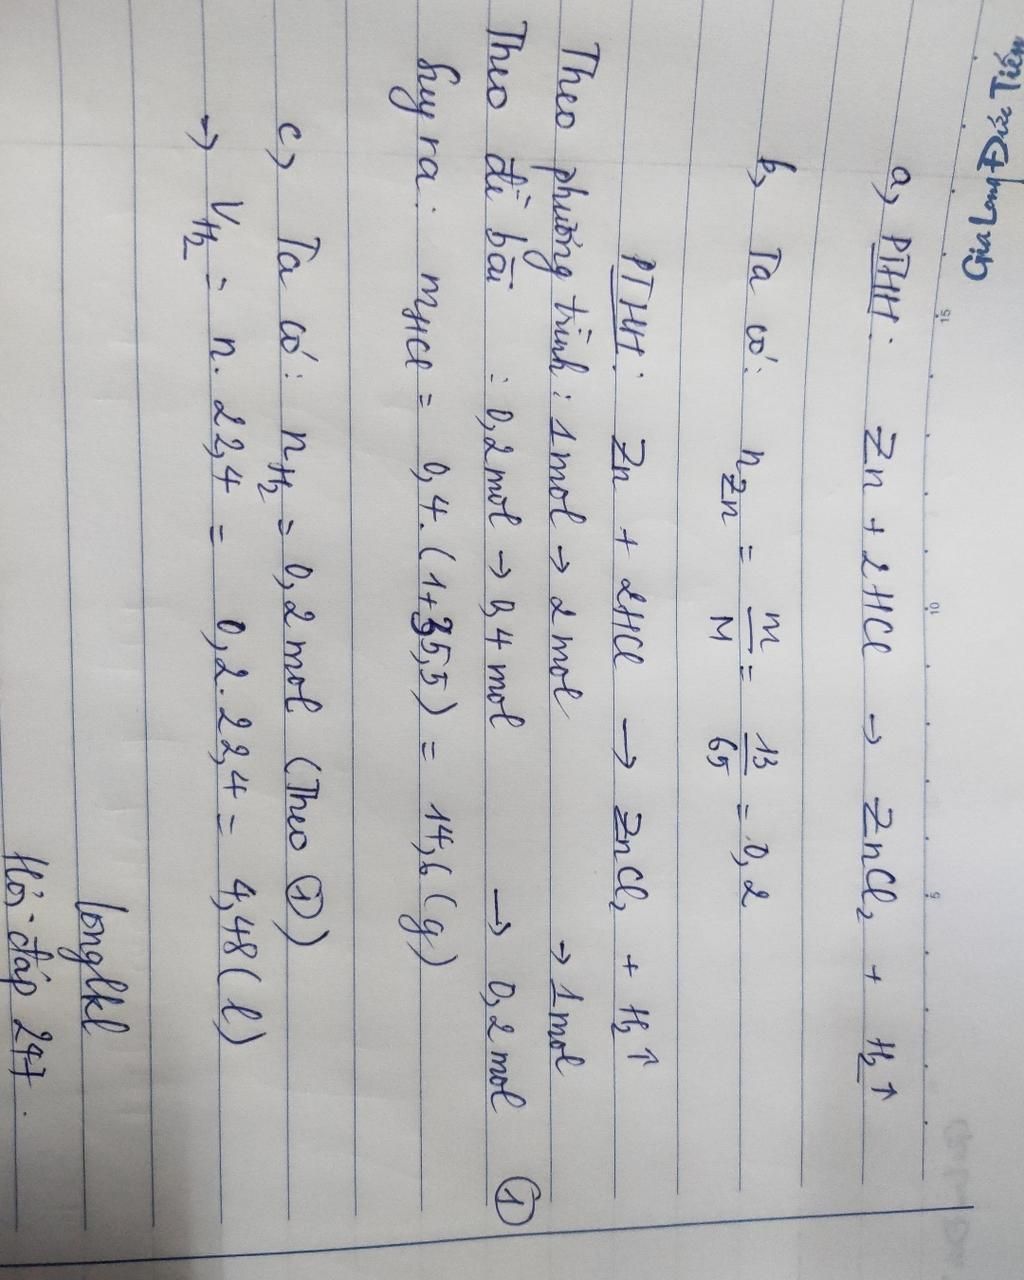 Gia Long-Đức Tiến
a, PTHH: Zn + 2HCl → ZnCl₂ + H₂↑
b, Ta có: nZn = m/M = 13/65 = 0,2
PTHH: Zn + 2HCl → ZnCl₂ + H₂↑
Theo phương trình: 1mol → 2mol → 1mol
Theo đề bài : 0,2mol → 0,4mol → 0,2mol ①
Suy ra: mHCl = 0,4.(1+35,5) = 14,6(g)
c, Ta có: nH₂ = 0,2mol (Theo ①)
→ VH₂ = n. 22,4 = 0,2.22,4 = 4,48(l)
longlkl
Hỏi đáp 247.
15
10
5